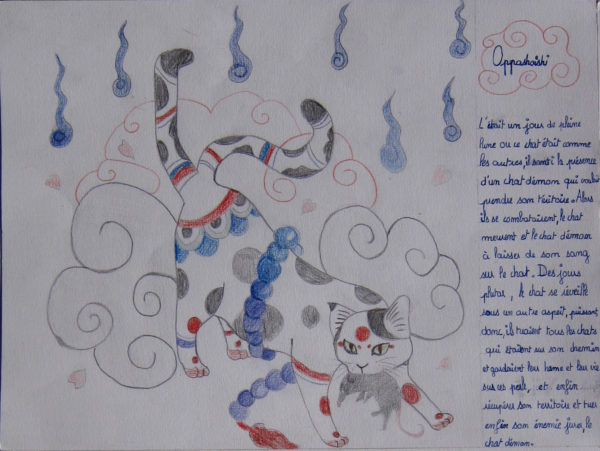 Oppashoishi
C'était un jour de pleine
lune ou ce chat était comme
les autres, il senti la présence
d'un chat démon qui voulait
prendre son téritoire. Alors
ils se combataient, le chat
meurent et le chat démon
à laisser de son sang
sur le chat. Des jours
plutar, le chat se réveille
sous un autre aspeit, puissant
donc, il tuaient tous les chats
qui étaient sur son chemin
et gardaient leur âme et leur vie
sur ces perle, et enfin
récupéra son territoire et tuer
enfin son énemie juré, le
chat démon.